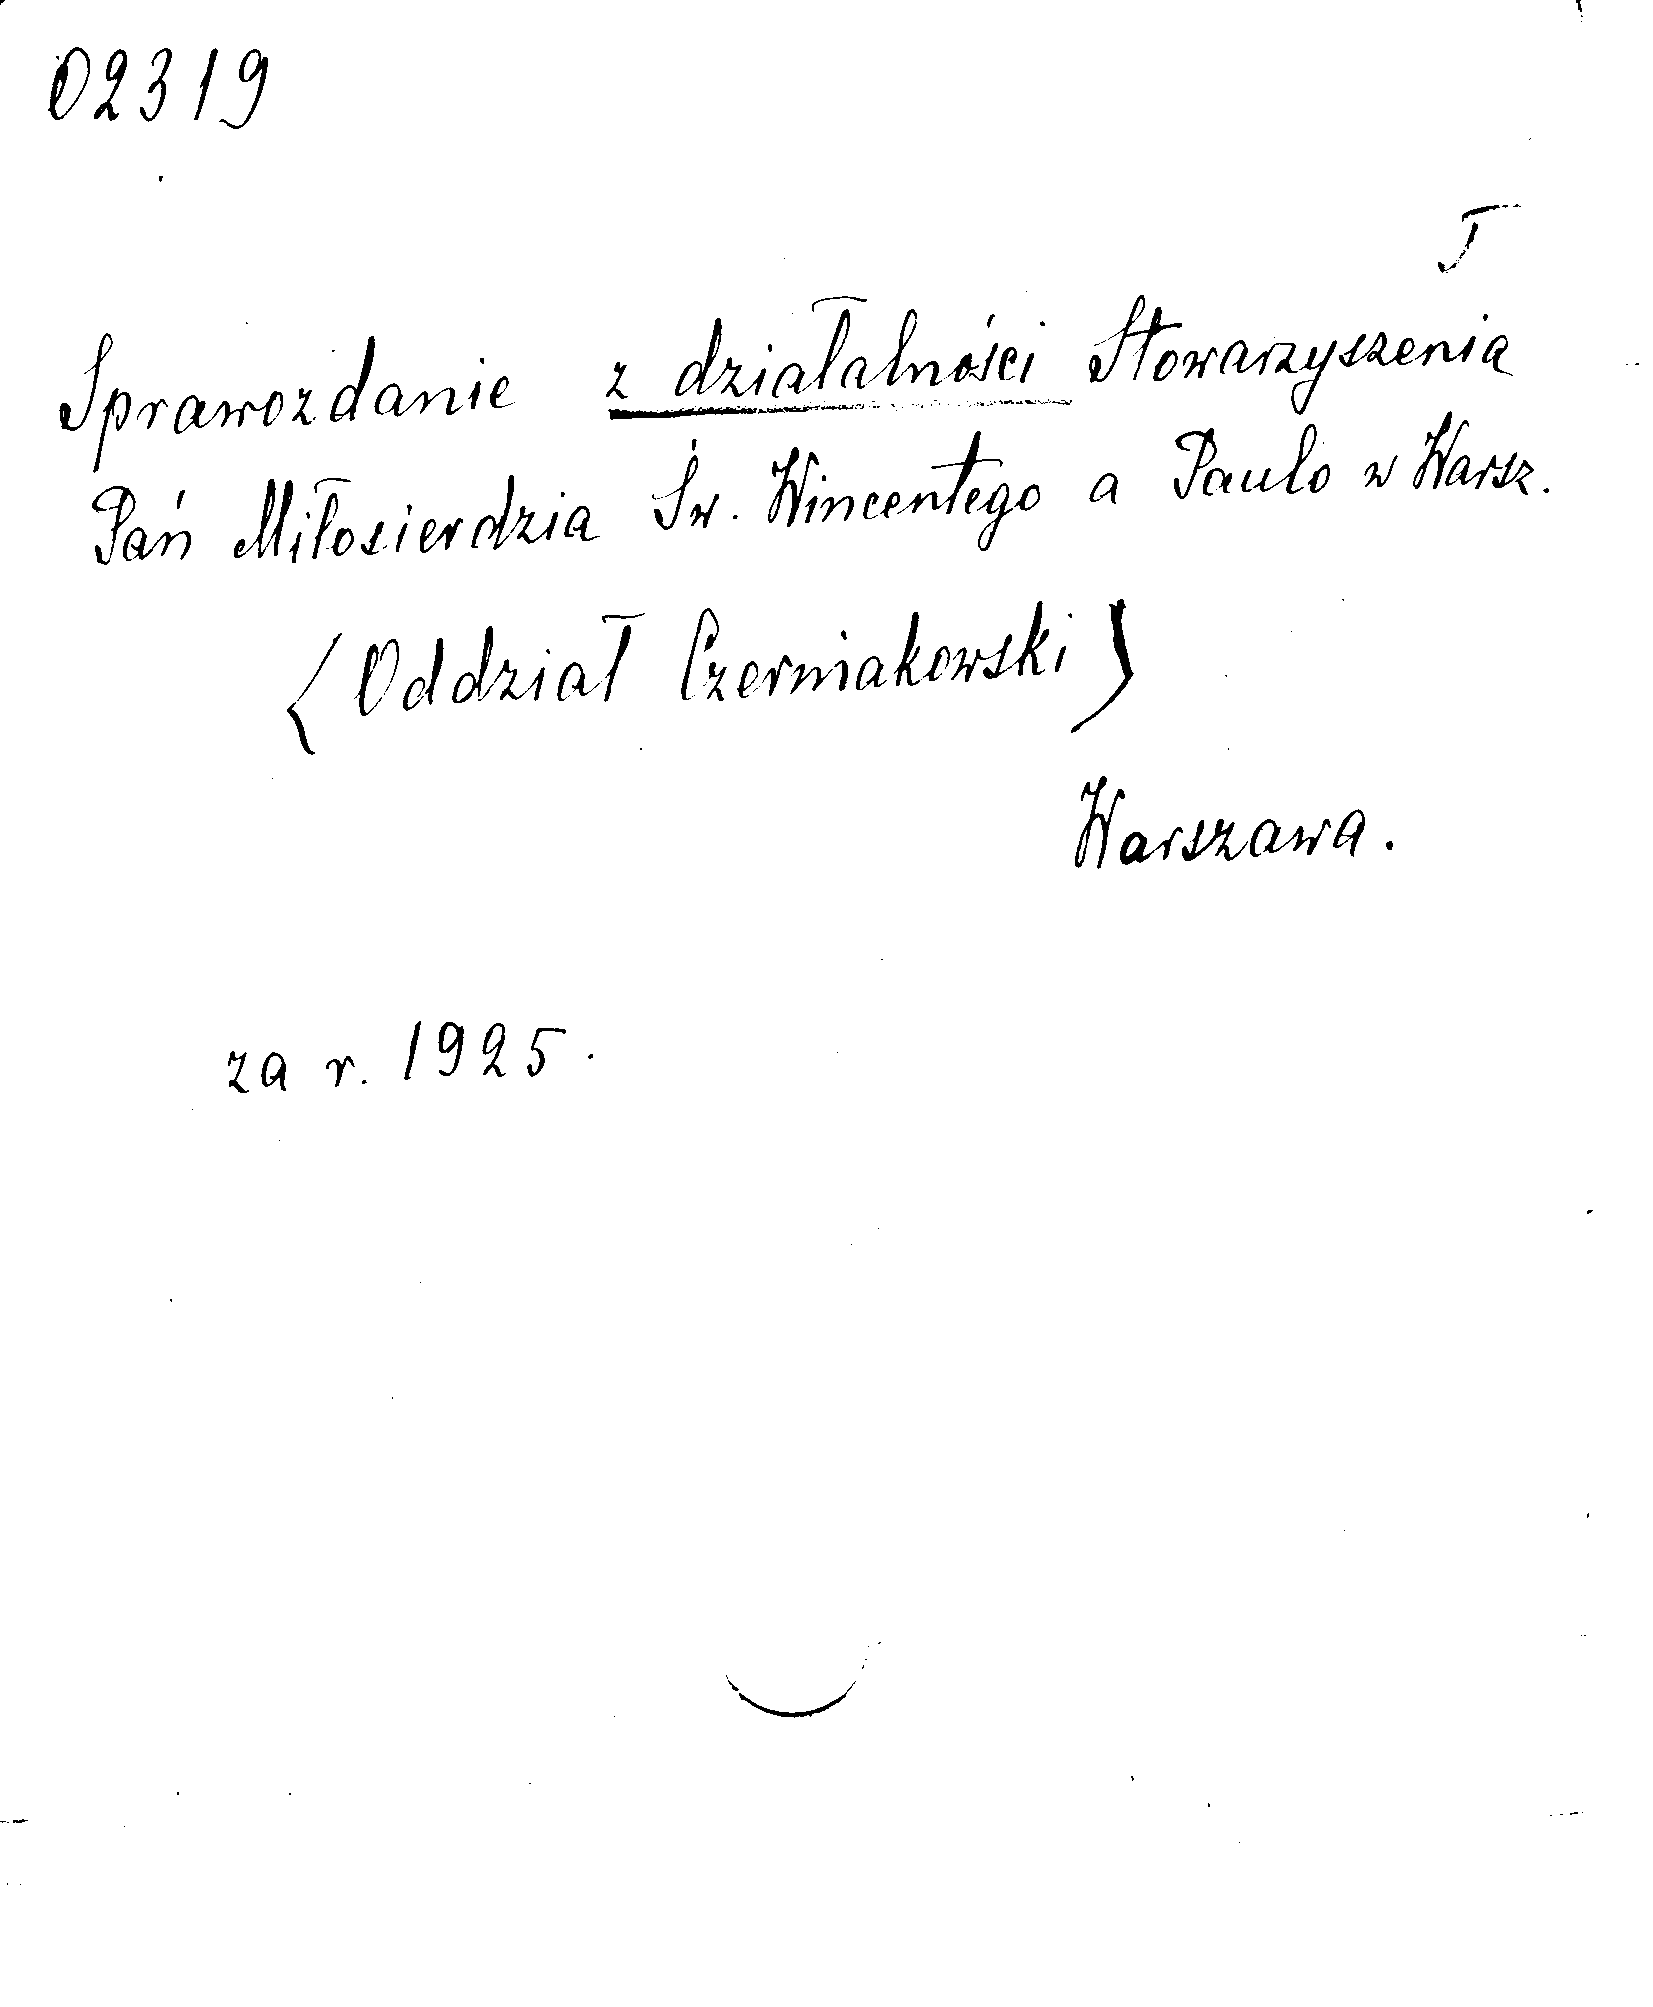 02319
T
Sprawozdanie z działalności Stowarzyszenia
Pań Miłosierdzia Św. Wincentego a Paulo w Warsz.
(Oddział Czerniakowski)
Warszawa.
za r. 1925.